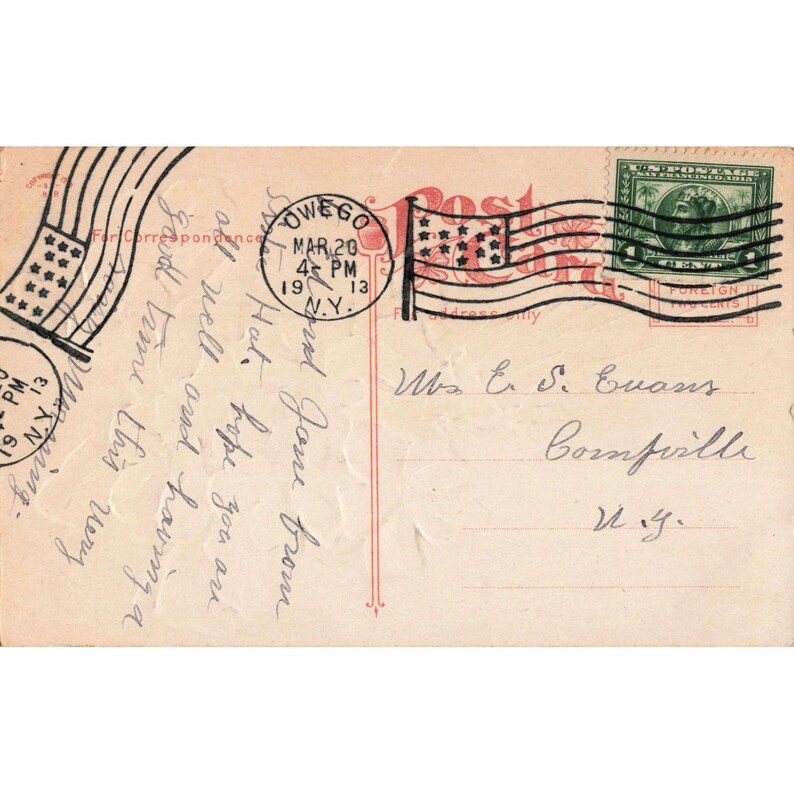 Post
Card
For Correspondence
For address only
OWEGO
MAR 20
4 - PM
19 13
N.Y.
U.S. POSTAGE
SAN FRANCISCO, 1915
1 CENT 1
FOREIGN
TWO CENTS
Mrs E. S. Evans
N. Y.
Aunt Jane from
Hat. hope you are
all well and having a
good time this very
Morning.
PM
19 13
N.Y.